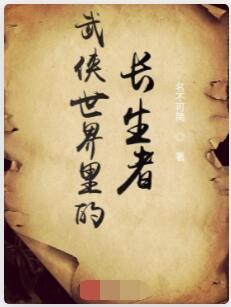 武侠世界里的
长生者
名不可 ◎ 著